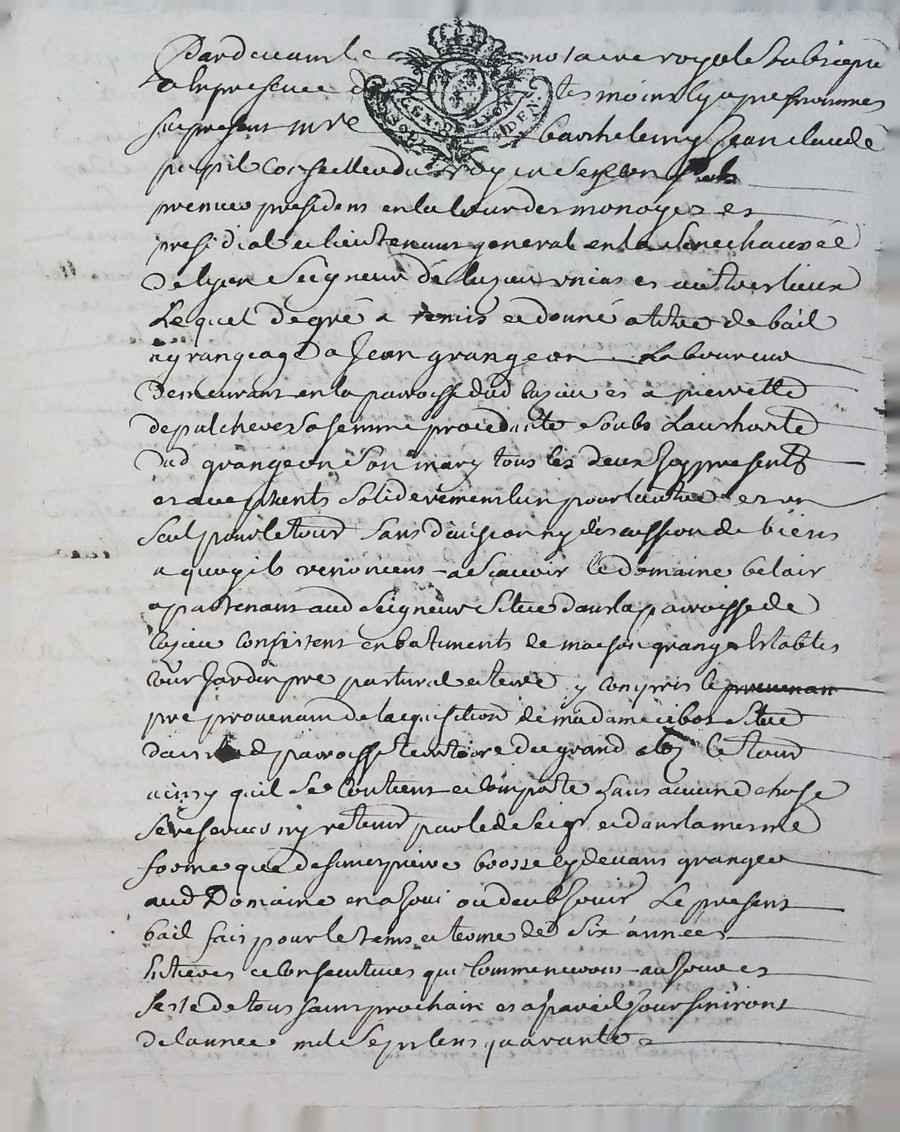 Pardevant le notaire royal soubsigné
a la presence des tesmoins cy apres nommes
fut present mre barthelemy Jean claude
pupil Conseiller du roy en ses Conseils
premier president en la Cour des monoyes et
presidial et lieutenant general en la Senechaussée
de lyon Seigneur de et autres lieux
Lequel de gré a remis et donné a titre de bail
a grangeage a Jean grangeon Laboureur
Demeurant en la paroisse dud et a pierrette
sa femme procedante soubs Lauthorité
dud grangeon son mary tous les deux icy presents
et acceptants Soliderement lun pour lautre et un
seul pour le tout sans division ny discussion de biens
a quoy ils renoncent a scavoir le domaine belair
apartenant aud Seigneur Situé dans la paroisse de
Consistent en batiments de maison grange Estables
Cour Jardin pré pastural et terre y compris le provenan
pré provenant de laquisition de madame Situé
dans lad paroisse territoire du grand le tout
ainsy quil se Contient et Comporte sans aucune chose
se reserver ny retenir par led Seigr et dans la mesme
forme que cy devant granger
aud Domaine en a joui ou deub jouir Le present
bail fait pour le tems et terme de Six années
Entieres et Consecutives qui Commenceront au jour et
feste de tous saint prochain et a pareil jour finiront
de lannée mil Sept Cens quarante
GEN. DE LYON